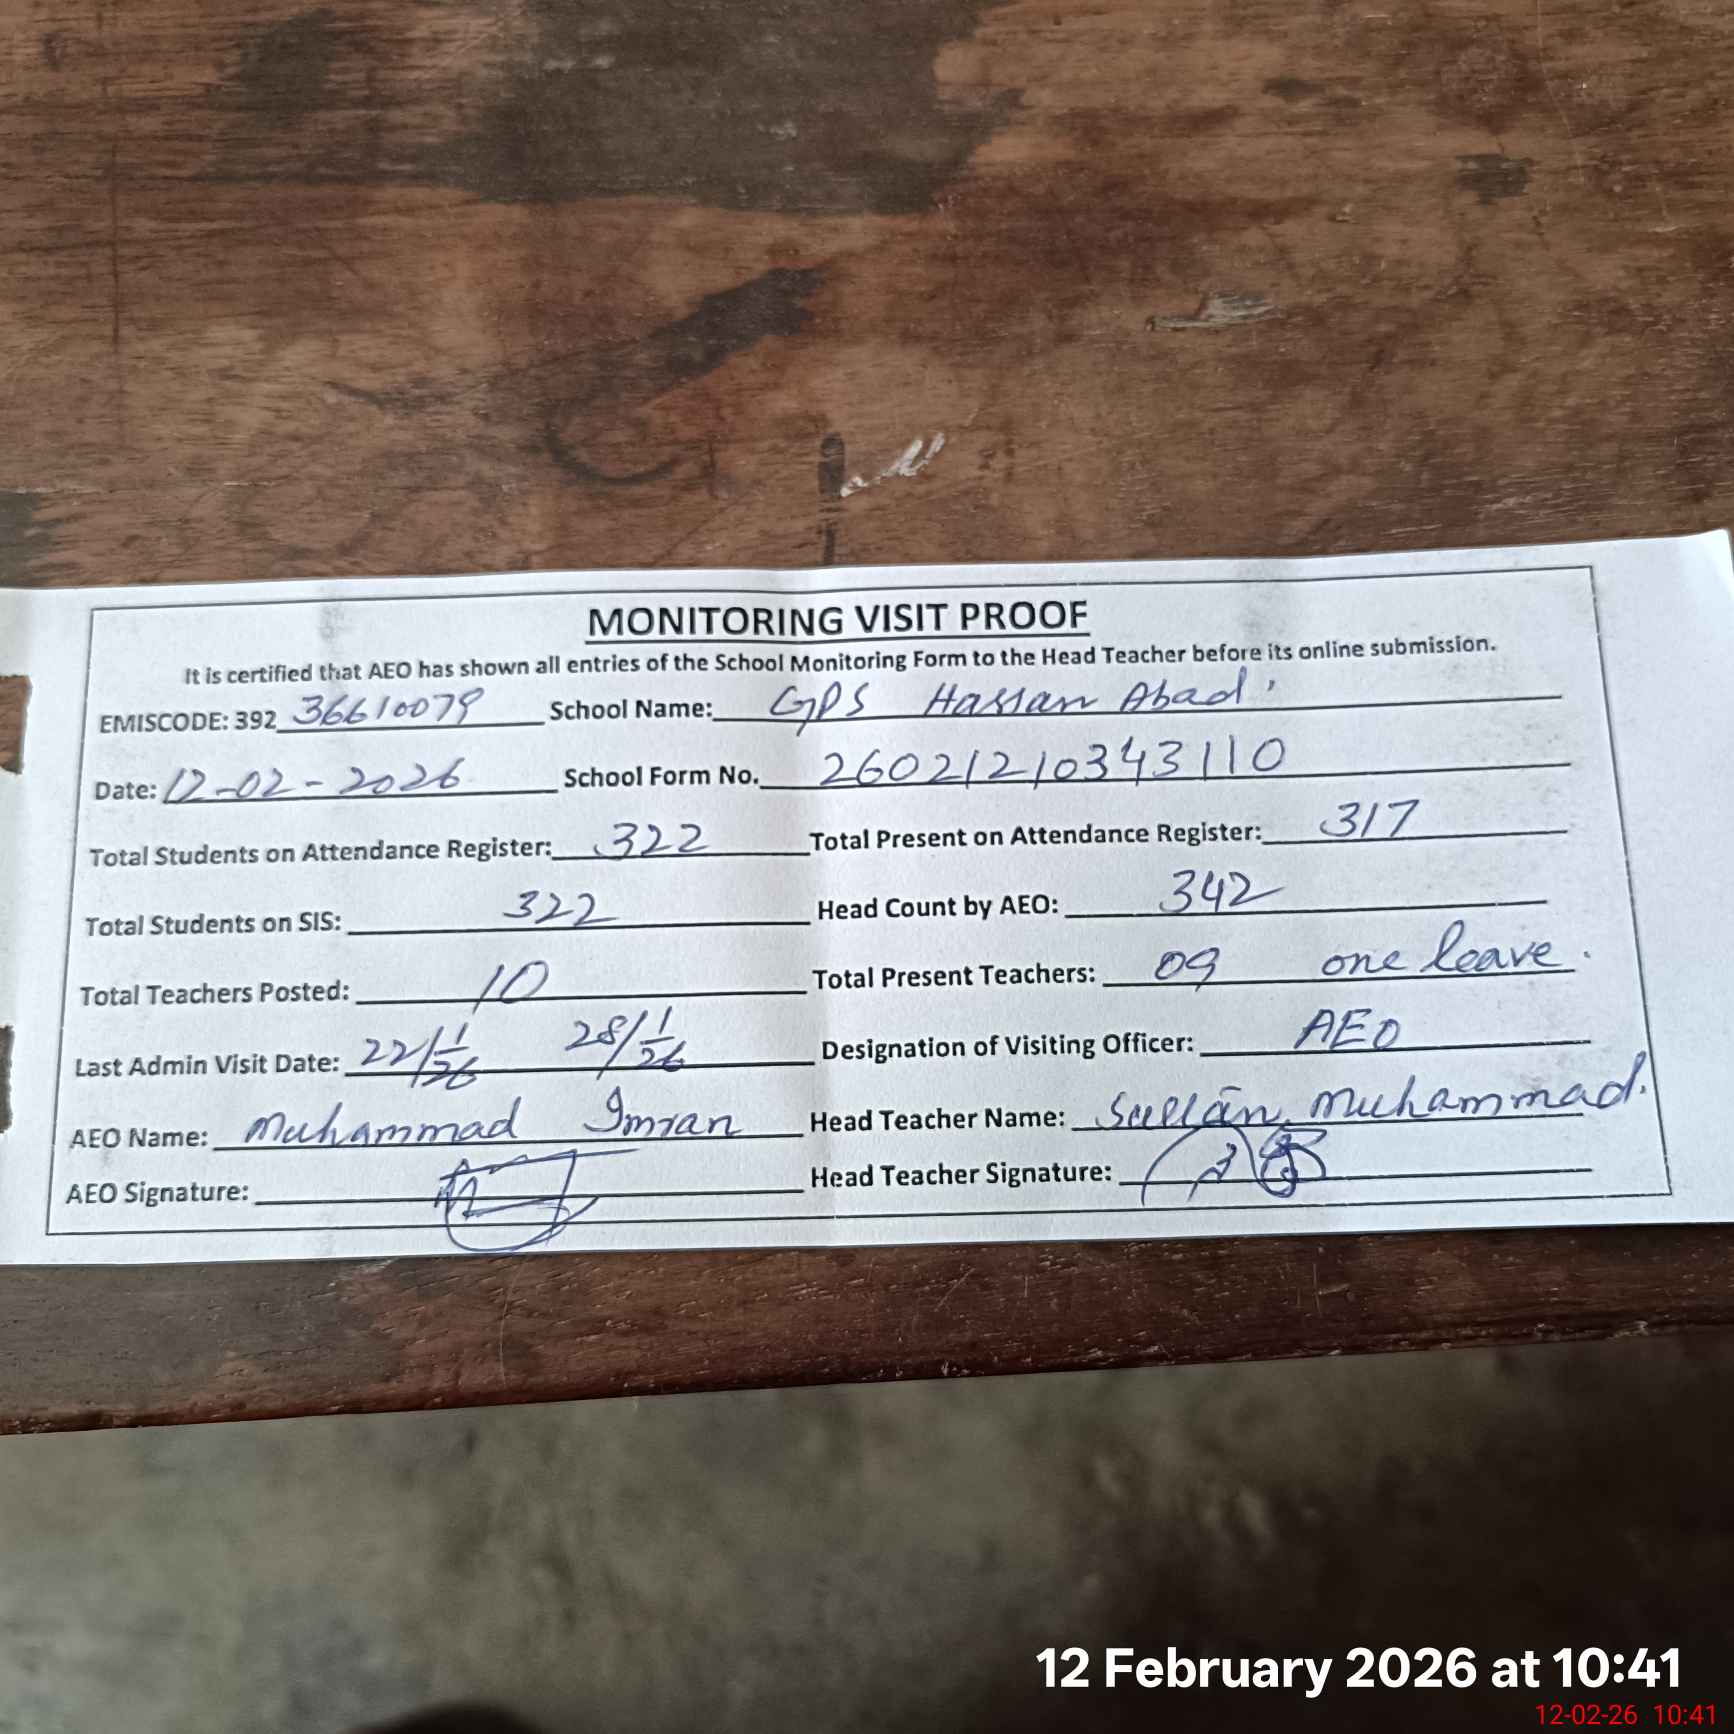 MONITORING VISIT PROOF
It is certified that AEO has shown all entries of the School Monitoring Form to the Head Teacher before its online submission.
EMISCODE: 392 36610079 School Name: GPS Hassan Abad
Date: 12-02-2026 School Form No. 26021210343110
Total Students on Attendance Register: 322 Total Present on Attendance Register: 317
Total Students on SIS: 322 Head Count by AEO: 342
Total Teachers Posted: 10 Total Present Teachers: 09 one leave.
Last Admin Visit Date: 22/1/26 28/1/26 Designation of Visiting Officer: AEO
AEO Name: Muhammad Imran Head Teacher Name: Sultan Muhammad.
AEO Signature: Head Teacher Signature:
12 February 2026 at 10:41
12-02-26 10:41